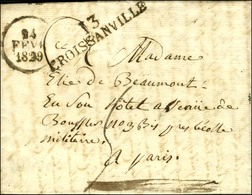 24
FEVR
1829
13
CROISSANVILLE
Madame
Elie de Beaumont
En son hôtel avenue de
près l'école
militaire
a paris